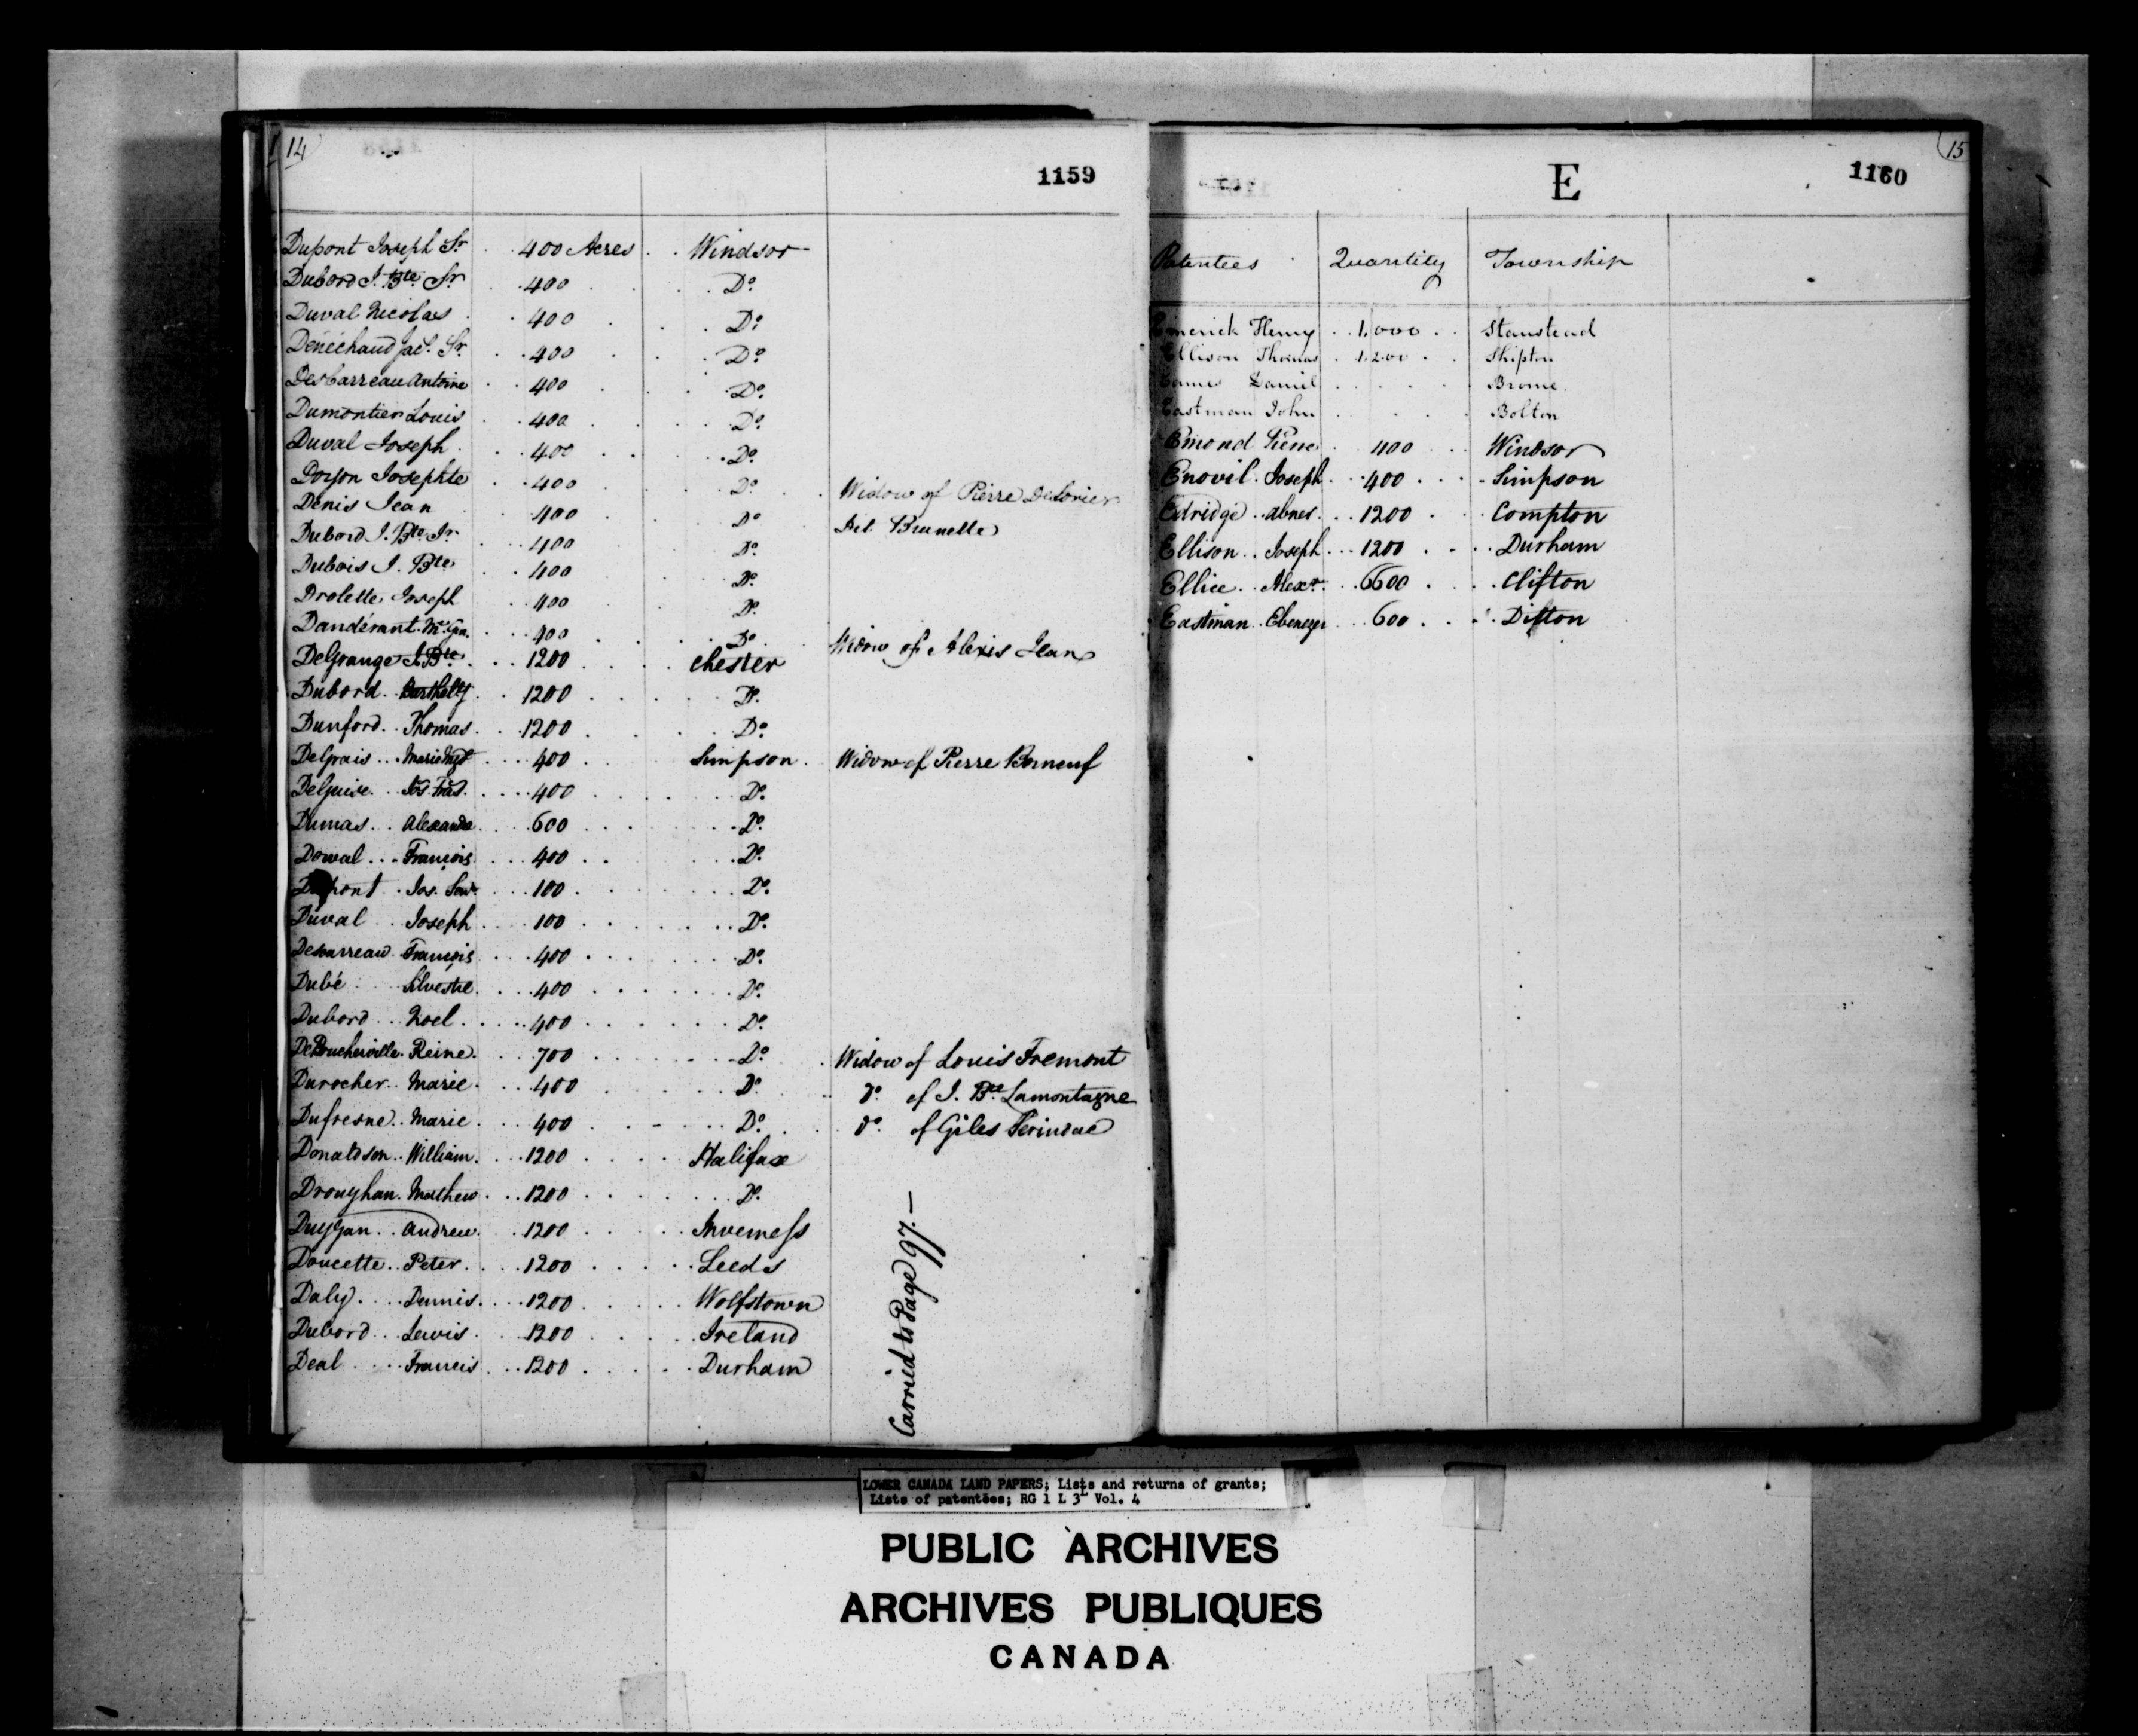 14
1159
Dupont Joseph Sr 400 Acres Windsor
Dubord J. Bte Sr 400 Do
Duval Nicolas 400 Do
Dénéchaud Jac. Sr 400 Do
Desbarreau Antoine 400 Do
Dumontier Louis 400 Do
Duval Joseph 400 Do
Josephte 400 Do Widow of Pierre
Denis Jean 400 Do Brunelle
Dubord J. Bte Jr 400 Do
Dubois J. Bte 400 Do
Drolette Joseph 400 Do
Dandérant 400 Do Widow of Alexis Jean
DeGrange J. Bte 1200 Chester
Dubord Bartholy 1200 Do
Dunford Thomas 1200 Do
DeGrais Marie 400 Simpson Widow of Pierre
DeGuise Jos. Fras. 400 Do
Dumas Alexandre 600 Do
Dowal François 400 Do
Dupont Jos. 100 Do
Duval Joseph 100 Do
François 400 Do
Dubé Silvestre 400 Do
Dubord Noel 400 Do
DeBoucherville Reine 700 Do Widow of Louis Fremont
Durocher Marie 400 Do do of J. Bte Lamontagne
Dufresne Marie 400 Do do of Giles
Donaldson William 1200 Halifax
Droughan Mathew 1200 Do
Duggan Andrew 1200 Inverness
Doucette Peter 1200 Leeds
Daly Dennis 1200 Wolfstown
Dubord Lewis 1200 Ireland
Deal Francis 1200 Durham
Carried to Page 97.—
15
E
1160
Patentees Quantity Township
Emerick Henry 1,000 Stanstead
Ellison Thomas 1,200 Shipton
Eames Daniel Brome
Eastman John Bolton
Emond Pierre 400 Windsor
Enovil Joseph 400 Simpson
Edridge Abner 1200 Compton
Ellison Joseph 1200 Durham
Ellice Alexr 6600 Clifton
Eastman Ebenezer 600 Ditton
LOWER CANADA LAND PAPERS; Lists and returns of grants;
Lists of patentees; RG 1 L 3L Vol. 4
PUBLIC ARCHIVES
ARCHIVES PUBLIQUES
CANADA